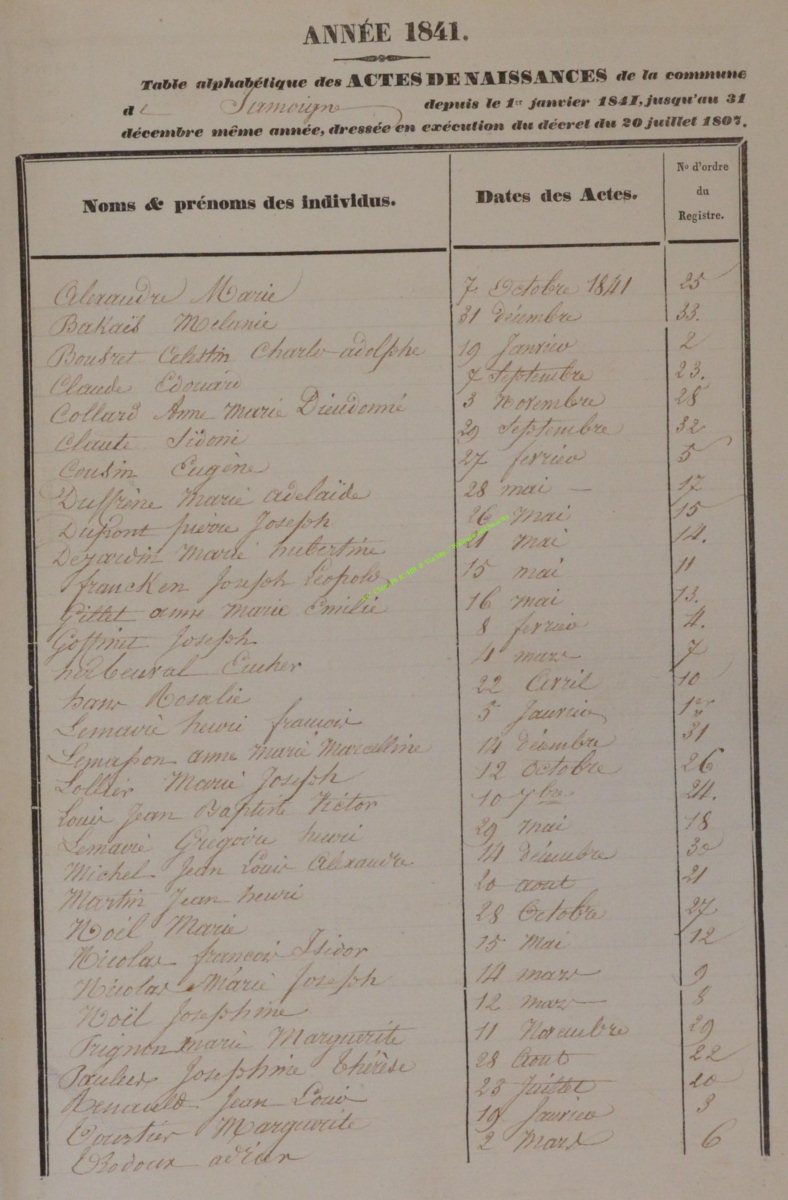 ANNÉE 1841.
Table alphabétique des ACTES DE NAISSANCES de la commune
de Jamoigne depuis le 1er janvier 1841, jusqu'au 31
décembre même année, dressée en exécution du décret du 20 juillet 1807.
Noms & prénoms des individus. Dates des Actes. No d'ordre du Registre.
Alexandre Marie 7 Octobre 1841 25
Bakaïs Melanie 31 décembre 33.
Celestin Charles adolphe 19 Janvier 2
Claude Edouard 7 Septembre 23.
Collard Anne Marie Dieudonné 3 Novembre 28
Claute Sidonie 29 Septembre 32
Cousin Eugène 27 fevrier 5
Duffrène Marie adelaïde 28 mai 17
Dupont pierre Joseph 26 Mai 15
Dezardin Marie hubertine 21 Mai 14.
francken Joseph Léopold 15 mai 11
Gillet anne Marie Emilie 16 mai 13.
Goffinet Joseph 8 fevrier 4.
herbeuval Eucher 4 mars 7
hans Rosalie 22 Avril 10
Lemaire henri francois 5 Janvier 1er
Lemasson anne Marie Marcelline 14 décembre 31
Lollier Marie Joseph 12 Octobre 26
Louis Jean Baptiste Victor 10 7bre 24.
Lemaire Gregoire henri 29 mai 18
Michel Jean Louis Alexandre 14 décembre 30
Martin Jean henri 20 aout 21
Noël Marie 28 Octobre 27
Nicolas francois Isidor 15 Mai 12
Nicolas Marie Joseph 14 mars 9
Noël Josephine 12 mars 8
Prignon marie Marguerite 11 Novembre 29
Paulus Josephine Thérèse 28 Aout 22
Renauld Jean Louis 23 Juillet 20
Marguerite 19 Janvier 3
adrien 2 Mars 6